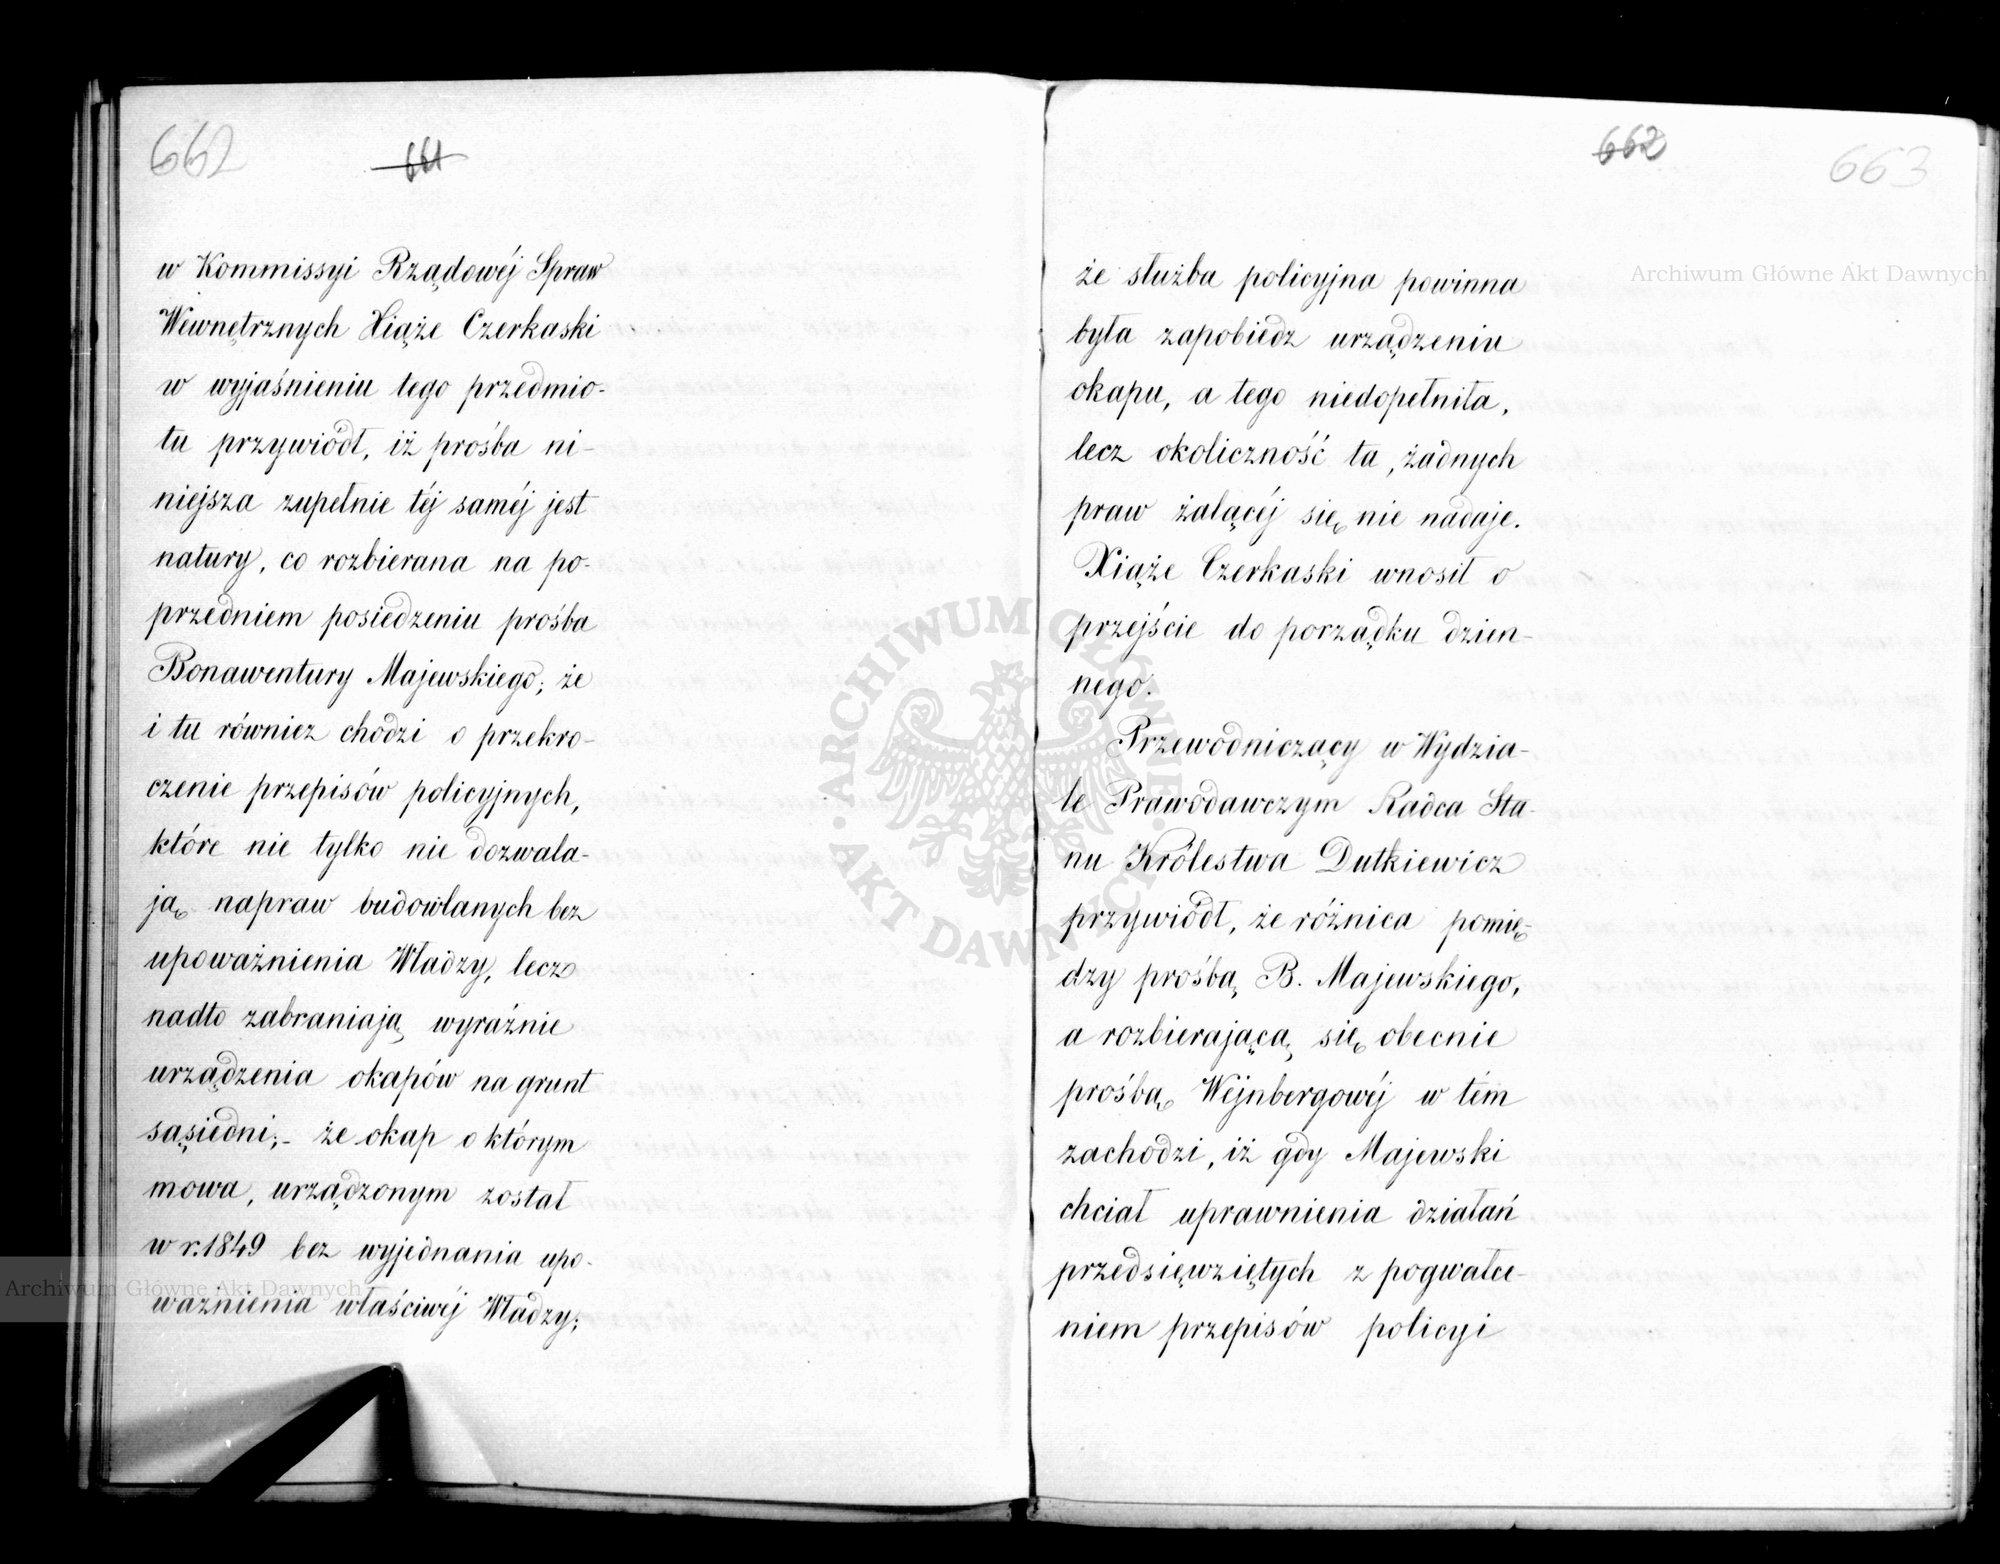 662
661
w Kommissyi Rządowéj Spraw
Wewnętrznych Xiąże Czerkaski
w wyjaśnieniu tego przedmio-
tu przywiódł, iż prośba ni-
niejsza zupełnie téj saméj jest
natury, co rozbierana na po-
przedniem posiedzeniu prośba
Bonawentury Majewskiego; że
i tu równiez chodzi o przekro-
czenie przepisów policyjnych,
które nie tylko nie dozwala-
ją napraw budowlanych bez
upoważnienia Władzy, lecz
nadto zabraniają wyraźnie
urządzenia okapów na grunt
sąsiedni;- że okap o którym
mowa, urządzonym został
w r. 1849 bez wyjednania upo-
ważnienia właściwéj Władzy;
662
663
że służba policyjna powinna
była zapobiedz urządzeniu
okapu, a tego niedopełniła,
lecz okoliczność ta, żadnych
praw żalącéj się nie nadaje.
Xiąże Czerkaski wnosił o
przejście do porządku dzien-
nego.
Przewodniczący w Wydzia-
le Prawodawczym Radca Sta-
nu Królestwa Dutkiewicz
przywiódł, że różnica pomię-
dzy prośbą B. Majewskiego,
a rozbierającą się obecnie
prośbą Wejnbergowéj w tém
zachodzi, iż gdy Majewski
chciał uprawnienia działań
przedsięwziętych z pogwałce-
niem przepisów policyi
Archiwum Główne Akt Dawnych
Archiwum Główne Akt Dawnych
ARCHIWUM GŁÓWNE
AKT DAWNYCH